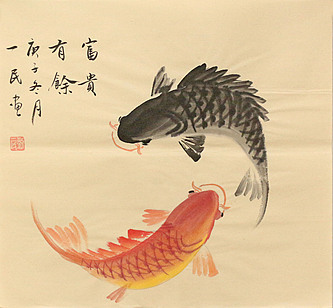 富貴
有餘
庚子冬月
一民畫